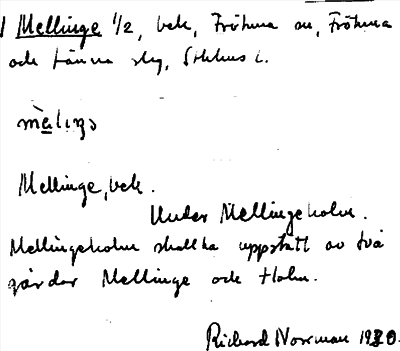 Mellinge 1/2, bek, Frötuna sn, Frötuna
och Länna slg, Sthlms l.
mèlingɔ
Mellinge, bek.
Under Mellingeholm.
Mellingeholm skall ha uppstått av två
gårdar Mellinge och Holm.
Richard Norrman 1930.